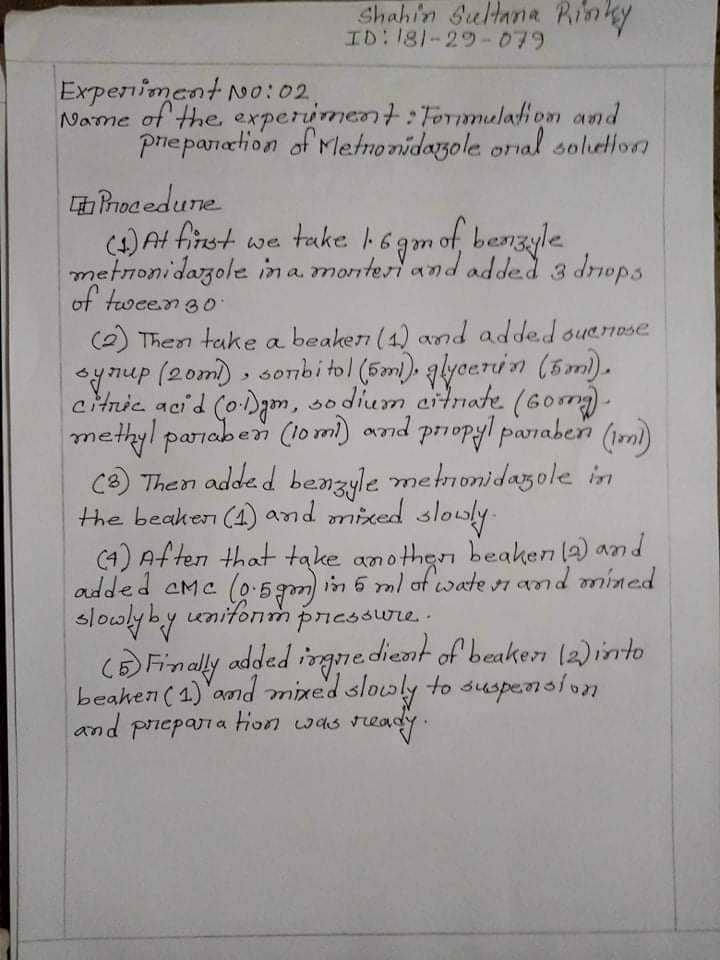 Shahin Sultana Rinky
ID: 181-29-079
Experiment No: 02
Name of the experiment: Formulation and
preparation of Metronidazole oral solution
Procedure
(1) At first we take 1.6 gm of benzyle
metronidazole in a morter and added 3 drops
of tween 30.
(2) Then take a beaker (1) and added sucrose
syrup (20ml), sorbitol (5ml), glycerin (5ml),
citric acid (0.1)gm, sodium citrate (60mg).
methyl paraben (10ml) and propyl paraben (1ml)
(3) Then added benzyle metronidazole in
the beaker (1) and mixed slowly.
(4) After that take another beaker (2) and
added CMC (0.5gm) in 5 ml of water and mixed
slowly by uniform pressure.
(5) Finally added ingredient of beaker (2) into
beaker (1) and mixed slowly to suspension
and preparation was ready.